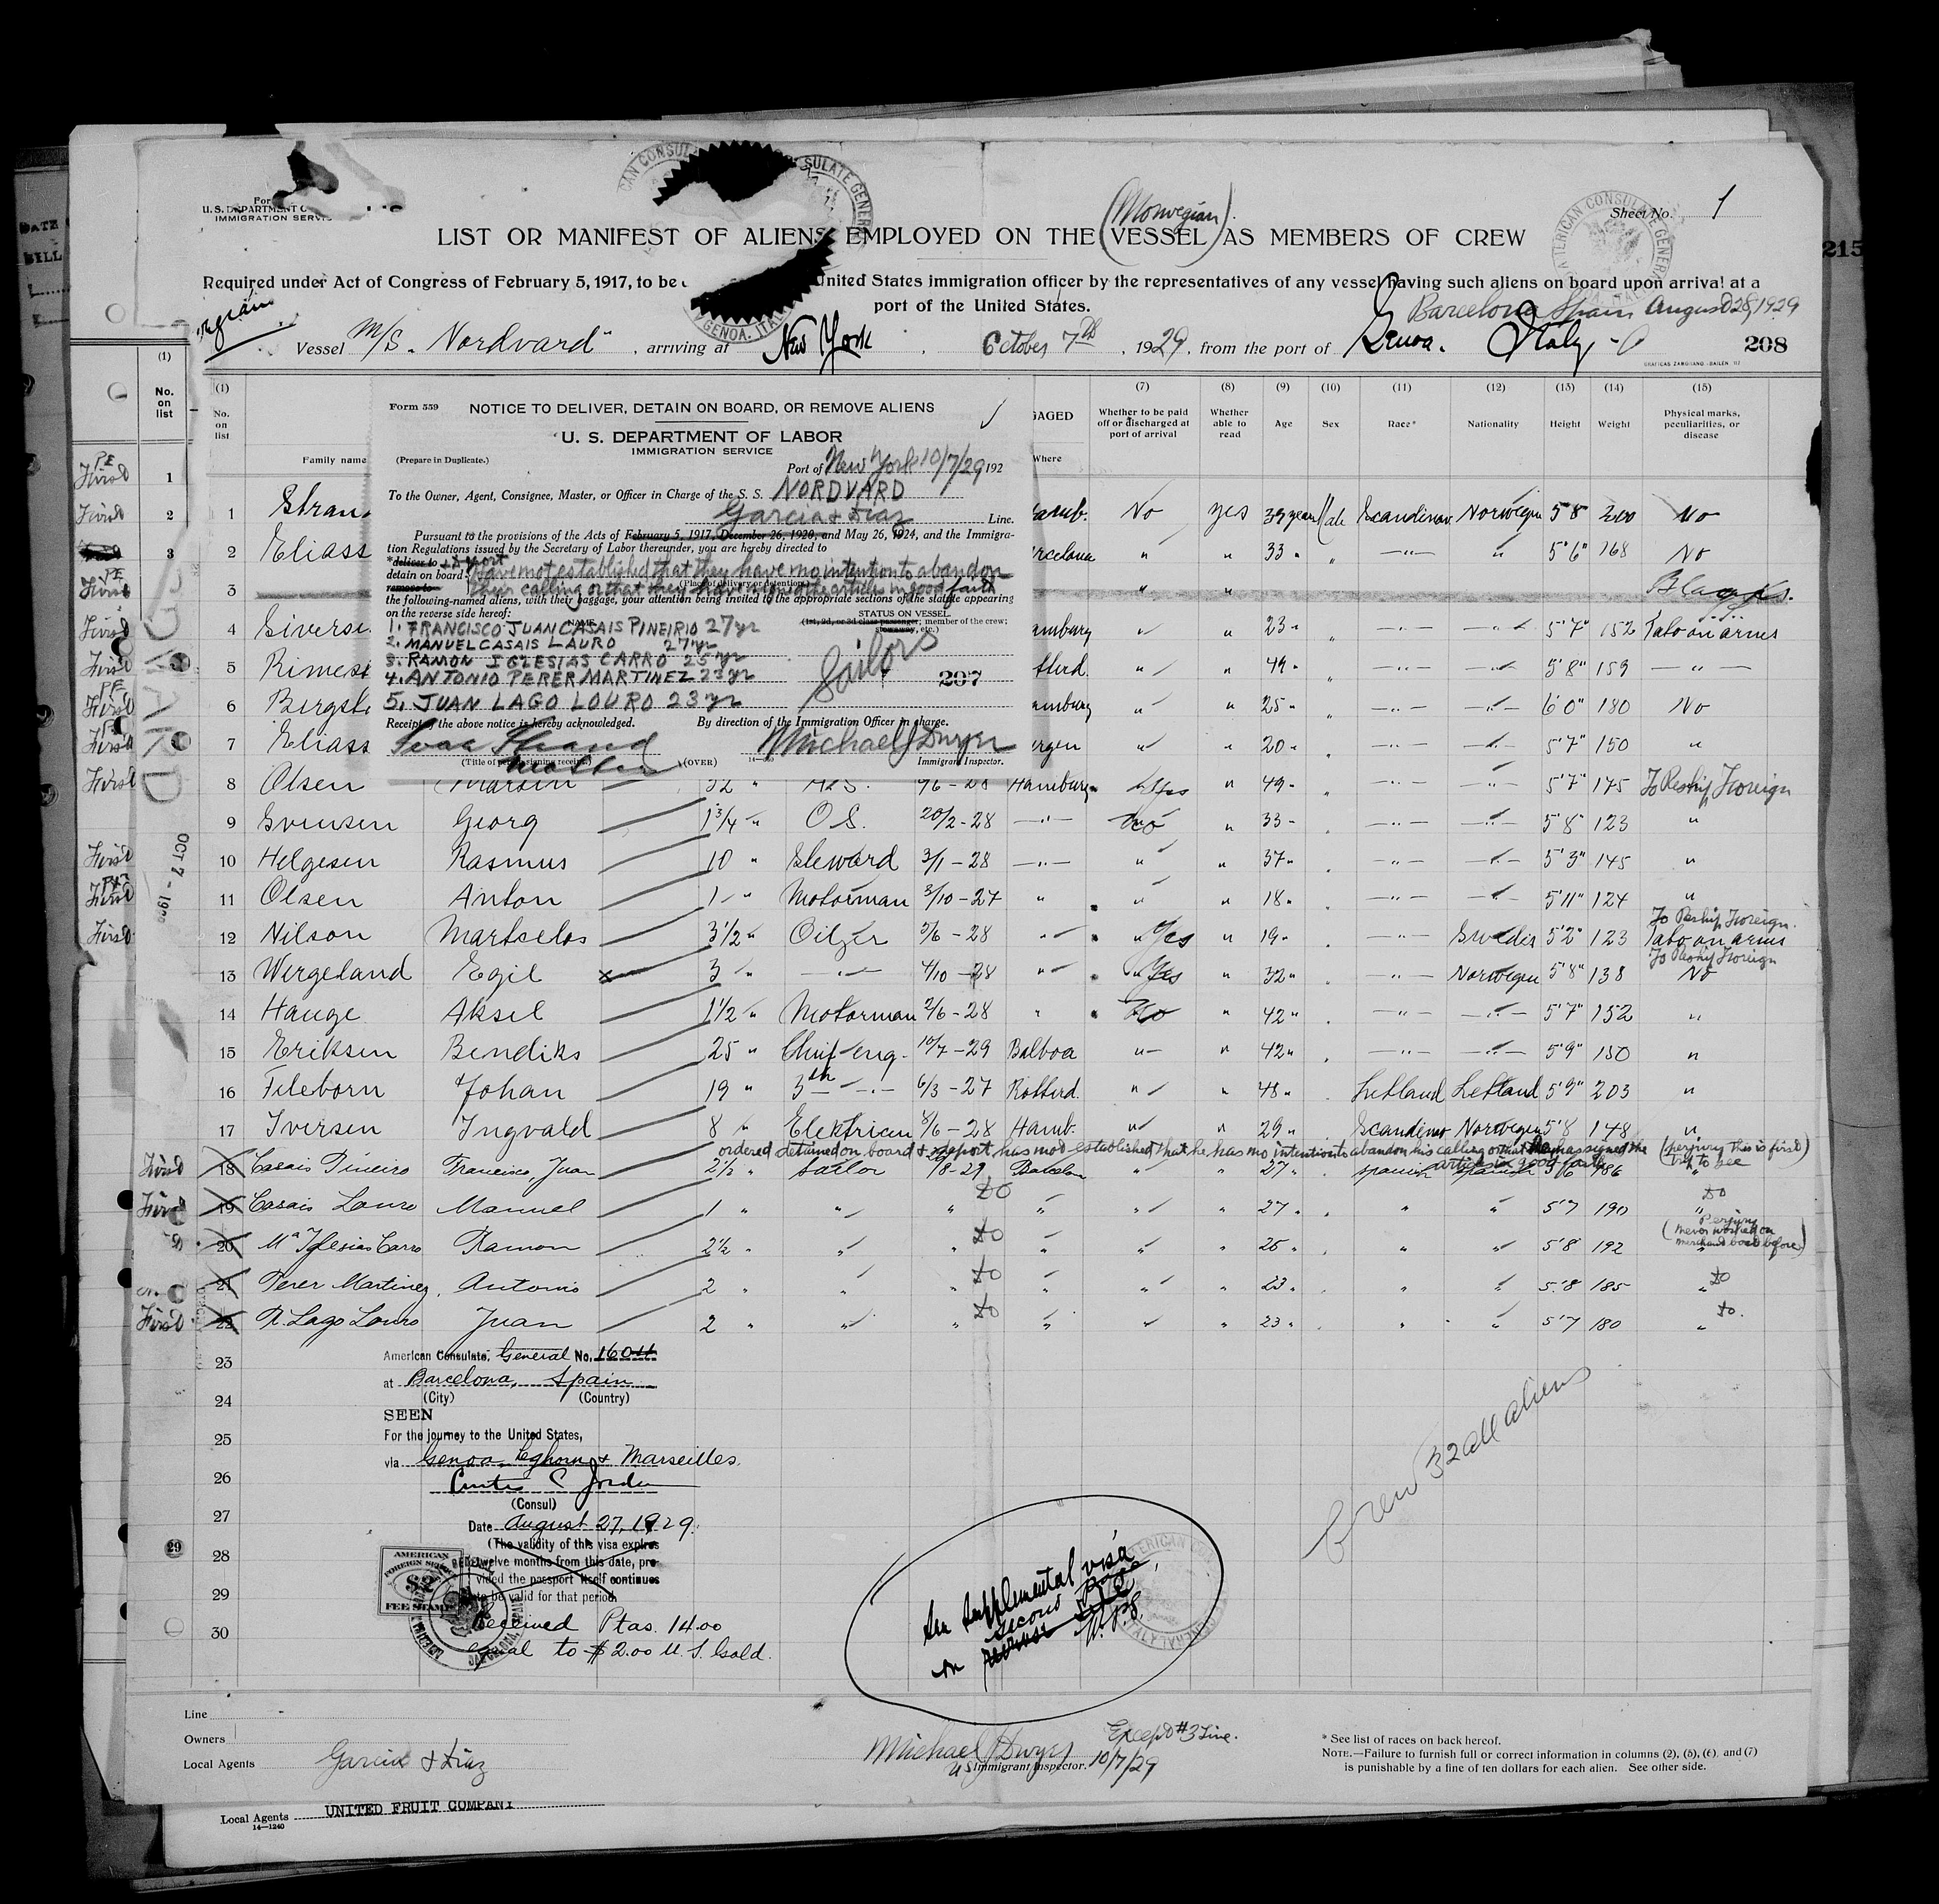 U.S. DEPARTMENT O
IMMIGRATION SERVI
Sheet No. 1
(Norwegian)
LIST OR MANIFEST OF ALIENS EMPLOYED ON THE (VESSEL) AS MEMBERS OF CREW
Required under Act of Congress of February 5, 1917, to be United States immigration officer by the representatives of any vessel having such aliens on board upon arrival at a
port of the United States.
Barcelona Spain August 28, 1929
Vessel M/S. "Nordvard" , arriving at New York , October 7th , 1929, from the port of Genoa. Italy 208
215
(1) (1) (7) (8) (9) (10) (11) (12) (13) (14) (15)
No. on list
No. on list
Family name
GAGED
Where
Whether to be paid off or discharged at port of arrival
Whether able to read
Age
Sex
Race*
Nationality
Height
Weight
Physical marks, peculiarities, or disease
Form 559 NOTICE TO DELIVER, DETAIN ON BOARD, OR REMOVE ALIENS
U. S. DEPARTMENT OF LABOR
IMMIGRATION SERVICE
(Prepare in Duplicate.)
Port of New York 10/7/29 192
To the Owner, Agent, Consignee, Master, or Officer in Charge of the S. S. NORDVARD
Garcia & Diaz Line.
Pursuant to the provisions of the Acts of February 5, 1917, December 26, 1920, and May 26, 1924, and the Immigra-
tion Regulations issued by the Secretary of Labor thereunder, you are hereby directed to
*deliver to & deport
detain on board Have not established that they have no intention to abandon
(Place of delivery or detention)
remove to their calling or that they have signed the articles in good faith
the following-named aliens, with their baggage, your attention being invited to the appropriate sections of the statute appearing
on the reverse side hereof:
NAME STATUS ON VESSEL
(1st, 2d, or 3d class passenger; member of the crew; stowaway, etc.)
1. FRANCISCO JUAN CASAIS PINEIRIO 27 yr
2. MANUEL CASAIS LAURO 27 yr
3. RAMON IGLESIAS CARRO 25 yr
4. ANTONIO PERER MARTINEZ 23 yr
5. JUAN LAGO LOURO 23 yr
Sailors
207
Receipt of the above notice is hereby acknowledged. By direction of the Immigration Officer in charge.
Michael J Dwyer
(Title of person signing receipt) Master (OVER) Immigrant Inspector.
1 Stran amb. No yes 39 years Male Scandinav. Norwegian 5'8 200 No
2 Eliass rcelona " " 33 " " —"— " 5'6" 168 No
3 " "
4 Siverse amburg " " 23 " " —"— —"— 5'7" 152 Tato on arms
5 Rimest tterd. " " 49 " —"— —"— 5'8" 159 —"—
6 Bergst amburg " " 25 " " —"— —"— 6'0" 180 No
7 Eliass rgen " " 20 " —"— —"— 5'7" 150 "
8 Olsen Martin 32 " 96-28 Hamburg Yes " 49 " " —"— —"— 5'7" 175 To Reship Foreign
9 Svensen Georg 1 3/4 " O.S. 20/2-28 —"— No " 33 " —"— —"— 5'8" 123 "
10 Helgesen Rasmus 10 " Steward 3/1-28 —"— " " 37 " —"— —"— 5'3" 145 "
11 Olsen Anton 1 " Motorman 3/10-27 " " " 18 " —"— —"— 5'11" 124 "
To Reship Foreign.
12 Nilson Martselos 3 1/2 " Oilzer 3/6-28 " Yes " 19 " —"— Swedis 5'2" 123 Tato on arms
To Reship Foreign
13 Wergeland Egil x 3 " —"— 4/10-28 " Yes " 32 " —"— Norwegian 5'8" 138 No
14 Hauge Aksel 1 1/2 " Motorman 2/6-28 " No " 42 " —"— —"— 5'7" 152 "
15 Eriksen Bendiks 25 " Chief eng. 10/7-29 Balboa " " 42 " —"— —"— 5'9" 150 "
16 Fileborn Johan 19 " 3th —"— 6/3-27 Rotterd. " " 48 " Letland Letland 5'9" 203 "
17 Iversen Ingvald 8 " Elektricen 8/6-28 Hamb. " " 29 " Scandinav Norwegian 5'8 148 "
ordered detained on board & deport, has not established that he has no intention to abandon his calling or that he has signed the articles in good faith (perjury this is first trip to see)
18 Casais Pineiro Francisco, Juan 2 1/2 " Sailor 29/8-29 Barcelon " " 27 " Spanish Spanish 5'6 186
19 Casais Louro Manuel 1 " " " Do " " " 27 " " " 5'7 190 Do
20 Ma Iglesias Carro Ramon 2 1/2 " " " Do " " " 25 " " " 5'8 192 Perjury (never worked on merchand boat before)
21 Perer Martinez, Antonio 2 " " " Do " " " 23 " " " 5'8 185 Do
22 R. Lago Louro Juan 2 " " " Do " " " 23 " " " 5'7 180 Do.
23
24
25
26
27
28
29
30
American Consulate, General No. 1604
at Barcelona, Spain
(City) (Country)
SEEN
For the journey to the United States,
via Genoa, Leghorn & Marseilles.
(Consul)
Date August 27, 1929.
(The validity of this visa expires
twelve months from this date, pro-
vided the passport itself continues
to be valid for that period.
AMERICAN
FOREIGN SERVICE
$2
FEE STAMP
Received Ptas. 14.00
Equal to $2.00 U.S. Gold.
See supplemental visa
on reverse side
second page
Crew 32 all aliens
OCT 7 - 1929
29
Line
Owners
Local Agents Garcia & Diaz
Michael J Dwyer
US Immigrant Inspector. 10/7/29
Except #3 Line.
* See list of races on back hereof.
NOTE.—Failure to furnish full or correct information in columns (2), (5), (6), and (7)
is punishable by a fine of ten dollars for each alien. See other side.
Local Agents UNITED FRUIT COMPANY
14—1240